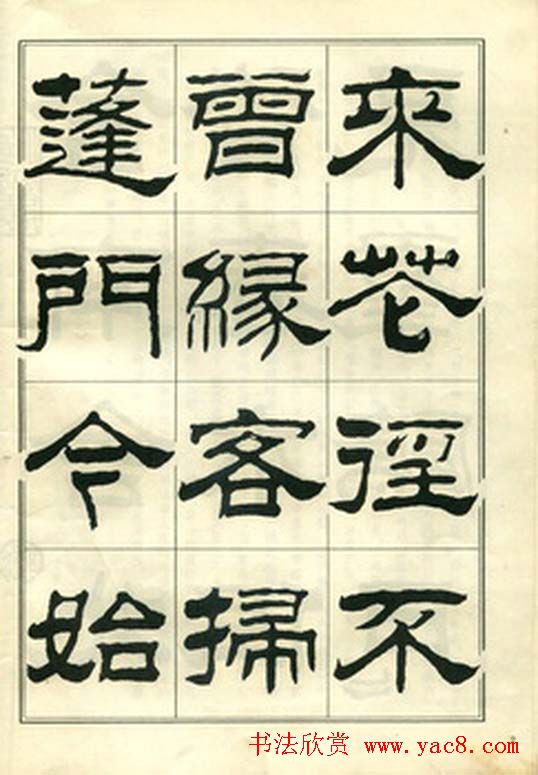 來花徑不
曾緣客掃
蓬門今始
书法欣赏 www.yac8.com